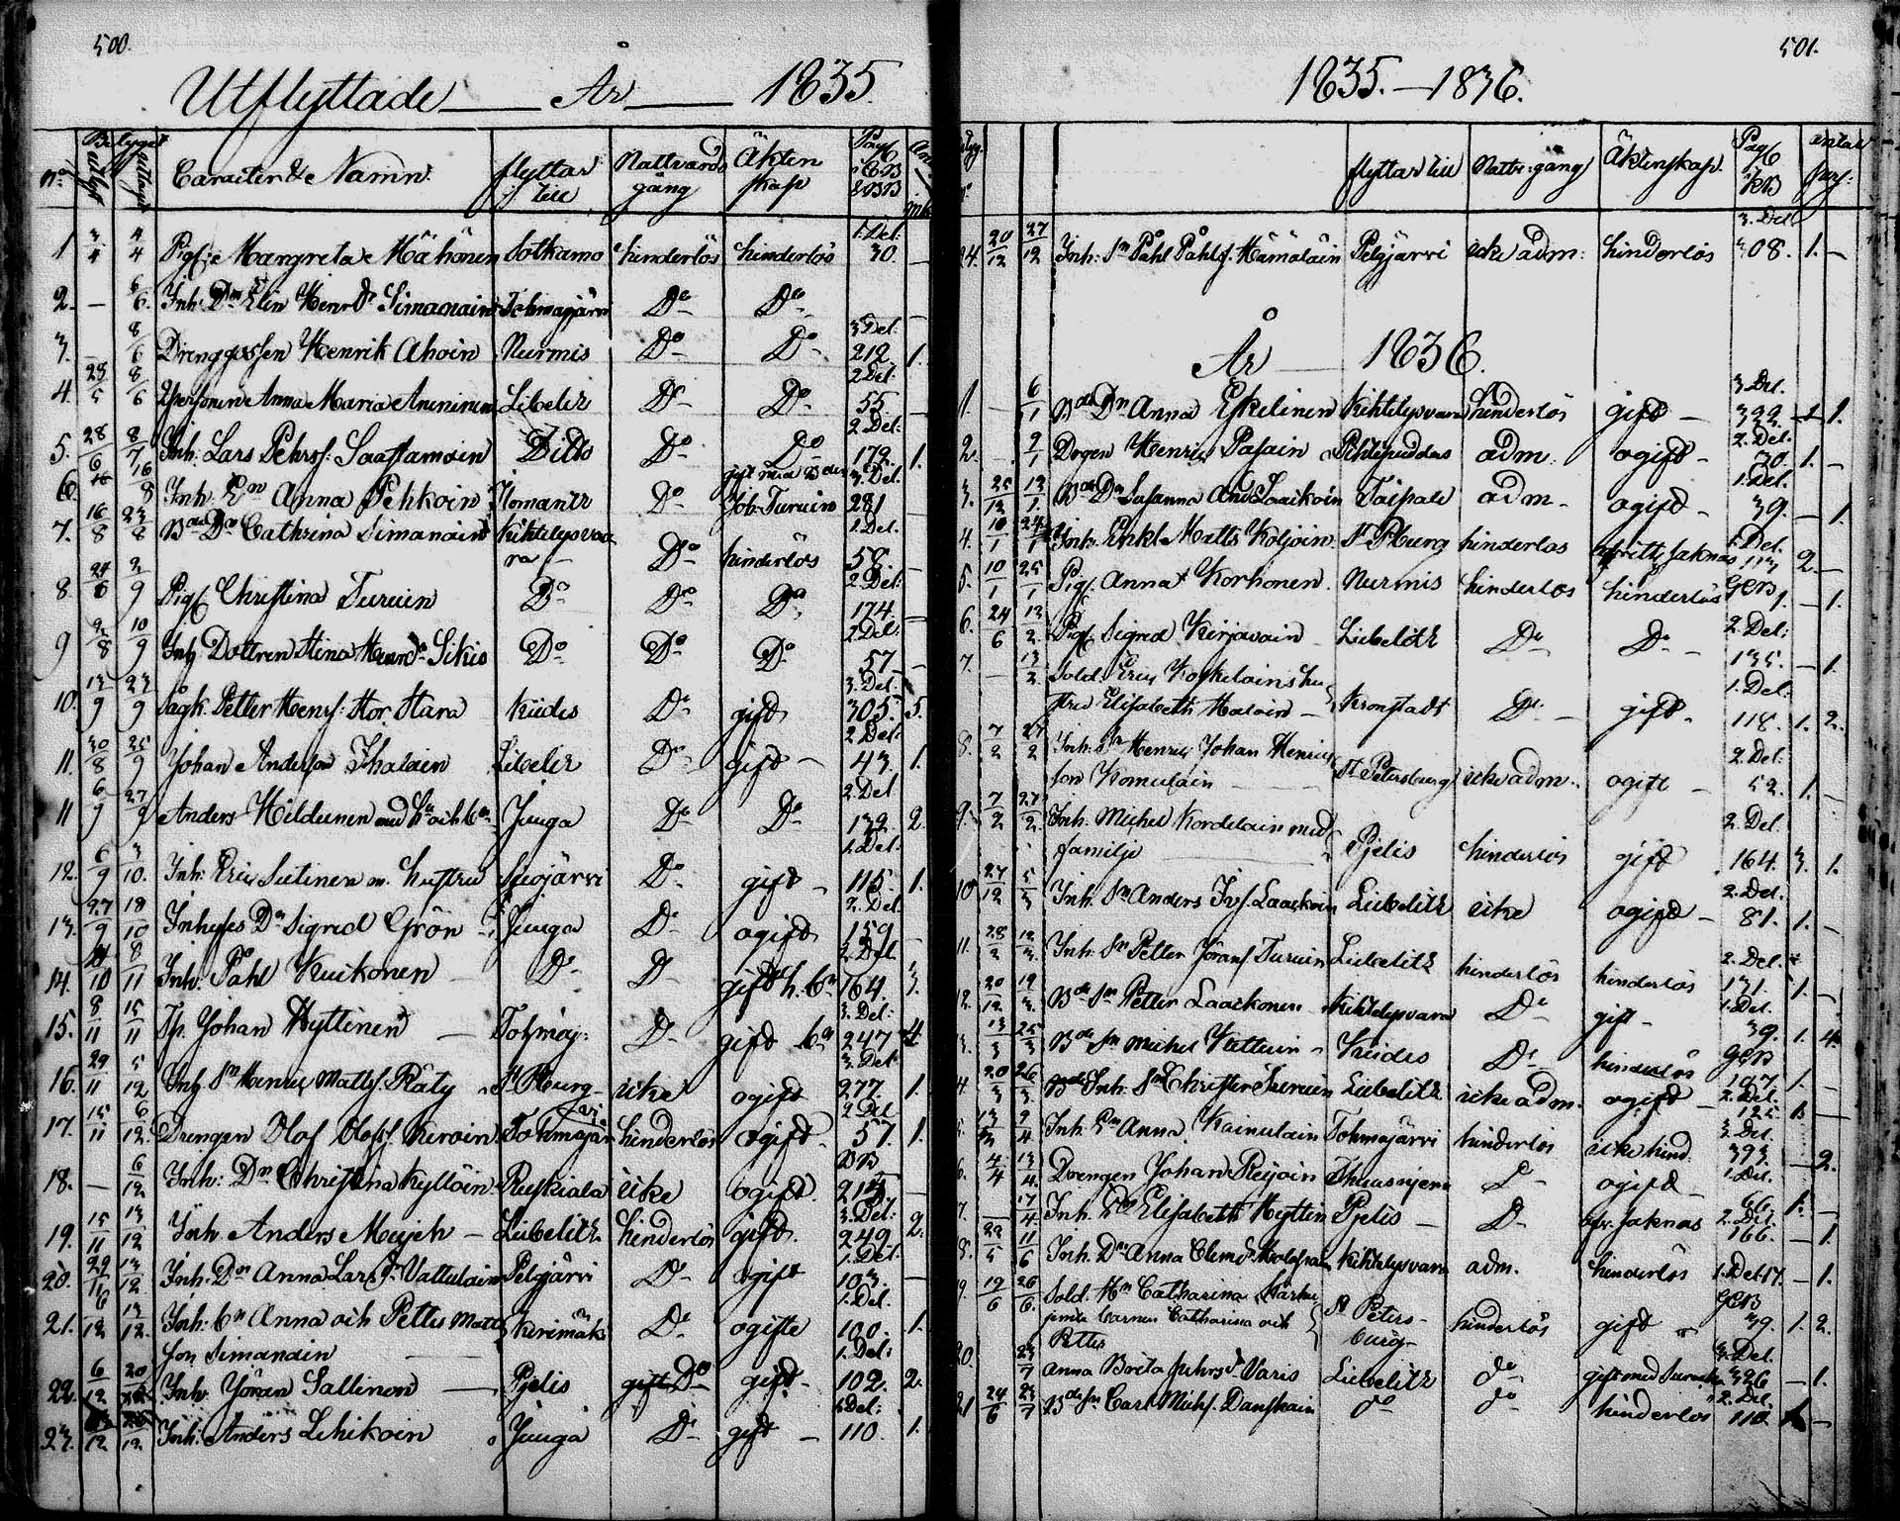 500.
Utflyttade År 1835.
No Betyget utlyst uttaget Caracter & Namn. flyttar till Nattvards gång Äkten skap Pag i CB & BB
1 3/4 4/4 Pig: Margreta Mähönen Sotkamo hinderlös hinderlös 1. Del: 30. —
2. — 6/6. Inh: Dn Elin Henrdr Simanain Tohmajärvi Do Do —
3. — 8/6 Drenggossen Henrik Ahoin Nurmis Do Do 3 Del. 212. 1.
4. 28/5 8/6 Anna Maria Libelitz Do Do 2 Del. 55. —
5. 28/6 8/7 Inh: Lars Pehrs: Saastamoin Ditto Do Do 2 Del: 179. 1.
6. 16/8 Inh. En Anna Pehkoin Ilomantz Do gift med Job Turuin 3. Del. 281 —
7. 16/8 23/8 Bde Dr Cathrina Simanain Kihtelysvaa
ra — Do hinderlös 1. Del. 58. —
8. 24/8 2/9 Pig Christina Turuin Do Do Do 2 Del: 174. —
9 8 10/9 Inh Dottren Stina Henrdr Sikio Do Do Do 2 Del: 57. —
10. 13/9 23/9 Petter Hens: Stor Stara Kides Do gift 3. Del. 305. 5.
11. 30/8 25/9 Johan Andersson Ihalain Libelitz Do gift — 2 Del: 43. 1.
11 6/9 27/9 Anders Hildunen med Hu och bn Juuga Do Do 2. Del 139. 2.
12. 6/9 3/10. Inh: Eric Sutinen m. hustru Suojärvi Do gift — 1. Del: 115. 1.
13. 27/9 18/10 Inhyses Dr Sigrid Grön Juuga Do ogift 2. Del. 159 —
14. 10 8/11 Inh. Påhl Kuikonen Do D gift h. bn 2. Del. 164. 3.
15. 8/11 15/11 Johan Hyttinen — Tohmaj: Do gift bn 3. Del: 247 4
16. 29/11 5/12 Inh Sn Henric Matts. Räty St Pburg icke ogift 3. Del: 277. 1.
17. 15/11 6/12. Drengen Olof Olofs. Keroin Tohmajärvi hinderlös ogift. 2 Del 57. 1.
18. — 6/12 Inh: Dn Christina Kyllöin Ruskiala icke ogift. BB —
19. 15/11 13/12 Inh. Anders — Libelitz hinderlös gift. 3. Del: 249. 2.
20. 29/11 13/12. Inh: Dn Anna Larsdr Vatulain Pelgjärvi Do ogift 1. Del: 103. —
21. 6/12 13/12. Inh: bn Anna och Petter Matts
son Simanain Kerimäki Do ogifte 1. Del. 100. 1.
22. 6/12 20/12 Inh: Jöran Sallinen — Pjelis Do gift. 1. Del: 102. 2.
23. 12 12 Inh: Anders Lehikoin Juuga Do gift — 1 Del: 110. 1.
501.
1835. — 1836.
flyttar till Nattv: gång Äktenskap. Pag KB antal pers:
24. 20/12 27/12 Inh: Sn Påhl Påhls. Hämäläin Pelgjärvi icke adm: hinderlös 3. Del 308. 1. —
År 1836.
1. — 6/1 Bde Dn Anna Eskelinen Kihtelysvara hinderlös gift — 3. Del. 399. — 1.
2. — 9/1 Drgen Henric Pasain Pihtipuddas adm. ogift — 2. Del. 30. 1. —
3. 25/12 13/1. Bde Dn Susanna Andsdr Laackoin Taipale adm — ogift — 1. Del. 39. — 1.
4. 10/1 24/1 Inh: Enkl. Matts Koljoin. St Pburg hinderlös afvitt. saknas 1. Del. 113 2. —
5. 10/1 25/1 Pig. Anna Korhonen Nurmis hinderlös hinderlös GCB 1. — 1.
6. 24/6 13/2. Pig. Sigrid Kirjavain — Liebelitz Do — Do — 2. Del: 135. — 1.
7. — 13/2. Sold. Eric Koskelains hu
stru Elisabeth Malain — Kronstadt Do — gift — 1. Del. 118. 1. 2.
8. 7/2 27/2 Inh: Sn Henric Johan Henric
son Komulain — St Petersburg icke adm. ogift — 2. Del: 52. 1. —
9. 7/2 27/2. Inh. Michel Kordelain med
familje Pjelis hinderlös gift 2. Del. 164. 3. 1.
10 27/12 5/3 Inh. Sn Anders Laackoin Liebelitz icke ogift — 2. Del. 81. 1. —
11. 28/2 12/3. Inh: Sn Petter Jörans. Turuin Liebelitz hinderlös hinderlös 2. Del. 131. 1. —
12. 20/12 19/3. Bde Sn Petter Laackonen Kihtelysvara Do gift — 1. Del. 39. 1. 4.
3. 13/3 25/3 Bde Sn Michel Kides Do — hinderlös GCB 107. 1. —
4. 20/3 26/3. Bde Inh. Sn Christer Turuin Liebelitz icke adm. ogift — 2. Del. 125 1. —
5. 13/3 9/4 Inh. En Anna Kainulain Tohmajärvi hinderlös icke hind. 3. Del. 393 — 2.
6. 4/4 13/4. Drengen Johan Reijoin Do — ogift — 1. Del. 66. 1. —
7. — 17/4 Inh. Elisabeth Hyttin Pjelis — Do — saknas 2. Del. 166. — 1.
8. 22/5 11/6 Inh. Dn Anna Clemdr Kihtelysvara adm. hinderlös 1. Del. 17. — 1.
9. 19/6 26/6. Sold. Hn Catharina
jemte barnen Catharina och
Petter St Peters-
burg hinderlös gift — GCB 39. 1. 2.
20. 23/7 Anna Brita Varis Liebelitz do gift med 3. Del. 326 — 1.
21 24/6 23/7 Bde Sn Carl Michs. Danskain do do hinderlös 2. Del. 110. —